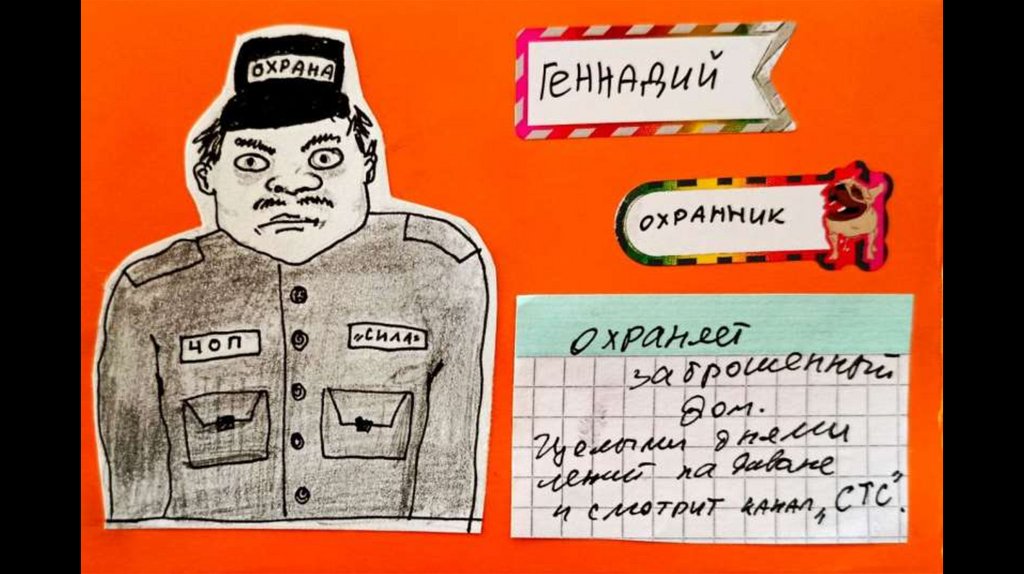 ОХРАНА
ЧОП
„СИЛА"
ГЕННАДИЙ
ОХРАННИК
ОХРАНЯЕТ
заброшенный
дом.
Целыми днями
лежит на диване
и смотрит канал „СТС".